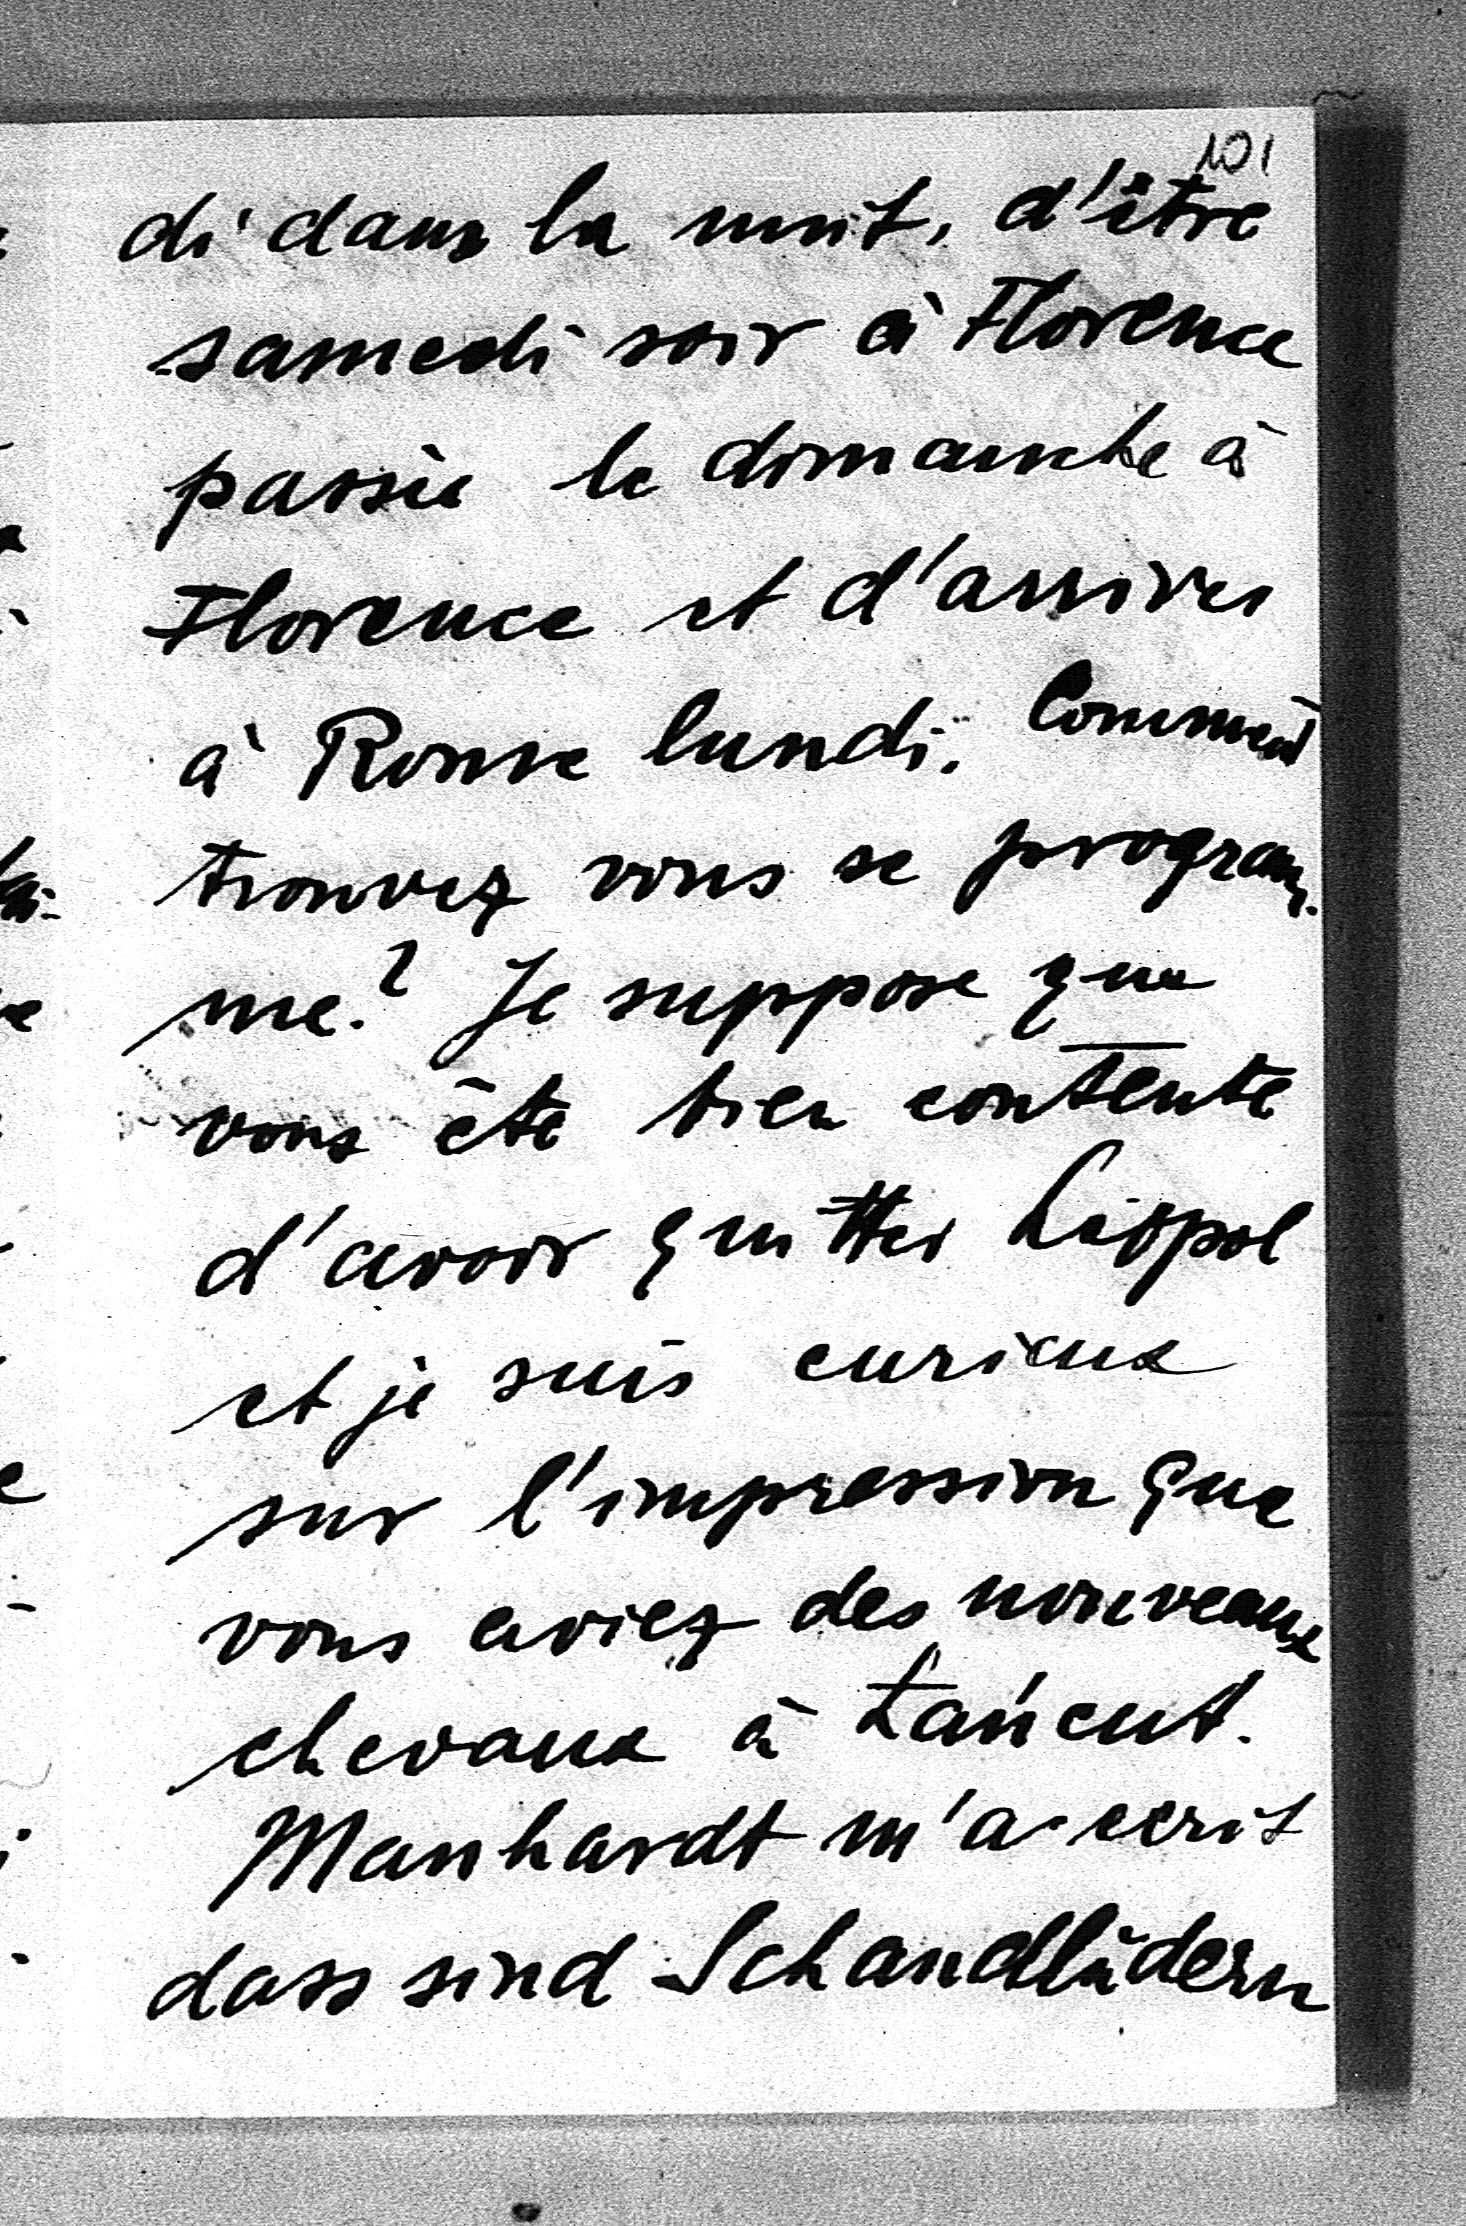 101
di dans la nuit, d'être
samedi soir à Florence
passer le dimanche à
Florence et d'arriver
à Rome lundi. Comment
trouvez vous se program-
me? Je suppose que
vous ête bien contente
d'avoir quitter Lippol
et je suis curieux
sur l'impression que
vous aviez des nouveaux
chevaux à Łańcut.
Manhardt m'a ecrit
dass sind Schandlüdern